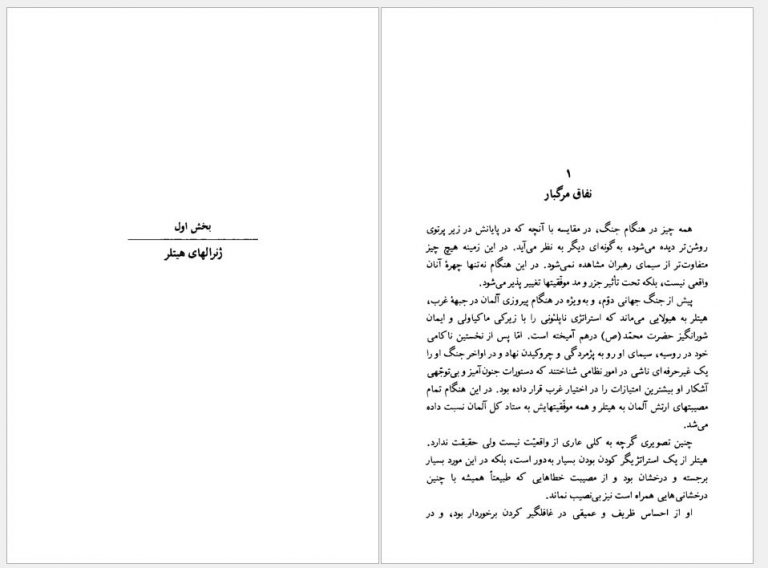 بخش اول
ژنرالهای هیتلر
۱
نفاق مرگبار
همه چیز در هنگام جنگ، در مقایسه با آنچه که در پایانش در زیر پرتوی
روشن‌تر دیده می‌شود، به‌گونه‌ای دیگر به نظر می‌آید. در این زمینه هیچ چیز
متفاوت‌تر از سیمای رهبران مشاهده نمی‌شود. در این هنگام نه‌تنها چهرهٔ آنان
واقعی نیست، بلکه تحت تأثیر جزر و مد موفّقیتها تغییر پذیر می‌شود.
پیش از جنگ جهانی دوّم، و به‌ویژه در هنگام پیروزی آلمان در جبههٔ غرب،
هیتلر به هیولایی می‌ماند که استراتژی ناپلئونی را با زیرکی ماکیاولی و ایمان
شورانگیز حضرت محمّد (ص) درهم آمیخته است. امّا پس از نخستین ناکامی
خود در روسیه، سیمای او رو به پژمردگی و چروکیدن نهاد و در اواخر جنگ او را
یک غیرحرفه‌ای ناشی در امور نظامی شناختند که دستورات جنون‌آمیز و بی‌توجّهی
آشکار او بیشترین امتیازات را در اختیار غرب قرار داده بود. در این هنگام تمام
مصیبتهای ارتش آلمان به هیتلر و همه موفّقیتهایش به ستاد کل آلمان نسبت داده
می‌شد.
چنین تصویری گرچه به کلی عاری از واقعیّت نیست ولی حقیقت ندارد.
هیتلر از یک استراتژیگر کودن بودن بسیار به‌دور است، بلکه در این مورد بسیار
برجسته و درخشان بود و از مصیبت خطاهایی که طبیعتاً همیشه با چنین
درخشانی‌هایی همراه است نیز بی‌نصیب نماند.
او از احساس ظریف و عمیقی در غافلگیر کردن برخوردار بود، و در